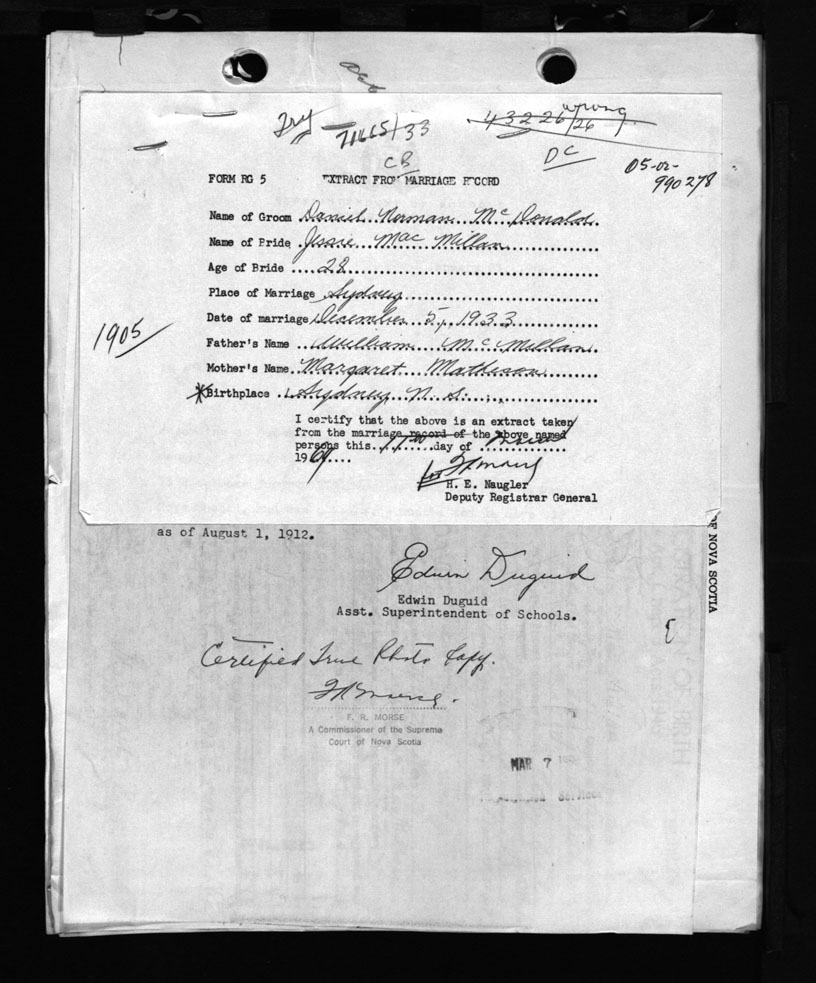 Try
71665/33
43226/26
wrong
CB
DC
05-02-
990278
FORM RG 5 EXTRACT FROM MARRIAGE RECORD
Name of Groom Daniel Norman McDonald
Name of Bride Jessie MacMillan
Age of Bride 28
Place of Marriage Sydney
Date of marriage December 5, 1933
1905
Father's Name William McMillan
Mother's Name Margaret Matheson
*Birthplace Sydney N. S.
I certify that the above is an extract taken
from the marriage record of the above named
persons this day of
1969
for FRMorse
H. E. Naugler
Deputy Registrar General
as of August 1, 1912.
OF NOVA SCOTIA
Edwin Duguid
Edwin Duguid
Asst. Superintendent of Schools.
Certified True Photo Copy.
FRMorse.
F. R. MORSE
A Commissioner of the Supreme
Court of Nova Scotia
MAR 7